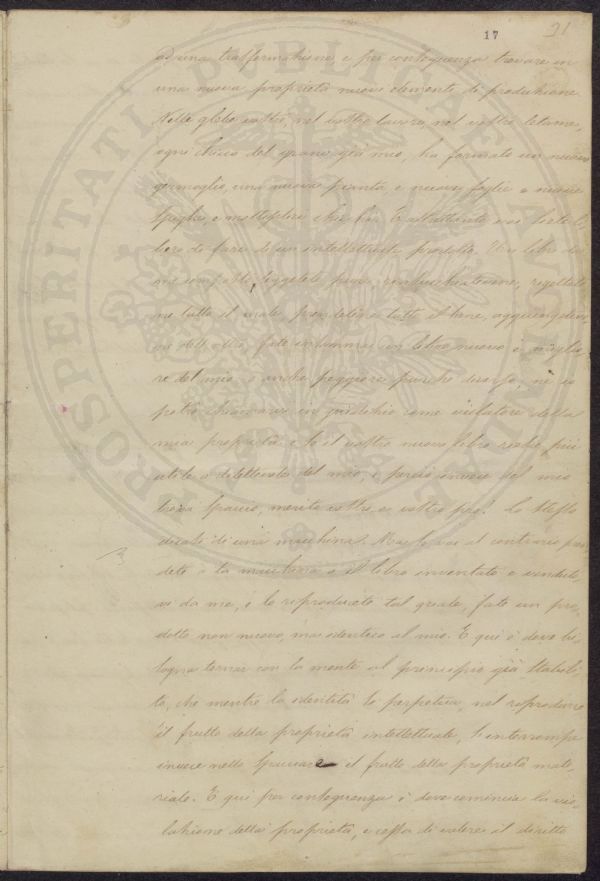 17
21
ad una trasformazione, e per conseguenza trovare in
una nuova proprietà nuovo elemento di produzione.
Nelle glebe vostre, nel vostro lavoro, nel vostro letame,
ogni chicco del grano già mio, ha formato un nuovo
germoglio, una nuova pianta, e nuove foglie e nuove
spighe, e
bero di fare di un intellettuale prodotto. Un libro da
me composto, leggetelo pure, rigettate
ne tutto il male, prendetene tutto il bene, aggiungete
ne dell'altro, fate insomma un libro nuovo o miglio
re del mio o anche peggiore purché diverso, né io
potrò chiamarvi in giudizio come violatore della
mia proprietà: e se il vostro nuovo libro più
utile o dilettevole del mio, e perciò invece del mio
trova spaccio, merito vostro, e vostro pro! Lo stesso
dicasi di una macchina. Ma se voi al contrario pren
dete o la macchina o il libro inventato o venduto
vi da me, e lo riproducete tal quale, fate un pro
dotto non nuovo, ma identico al mio. E qui è dove bi
sogna tornar con la mente al principio già stabili
to, che mentre la identità si perpetua, nel riprodurre
il frutto della proprietà intellettuale, s'interrompe
invece nello spacciare il frutto della proprietà mate
riale. E qui per conseguenza è dove comincia la vio
lazione della proprietà, e cessa di valere il diritto
PROSPERITATI PUBLICAE AUGENDAE